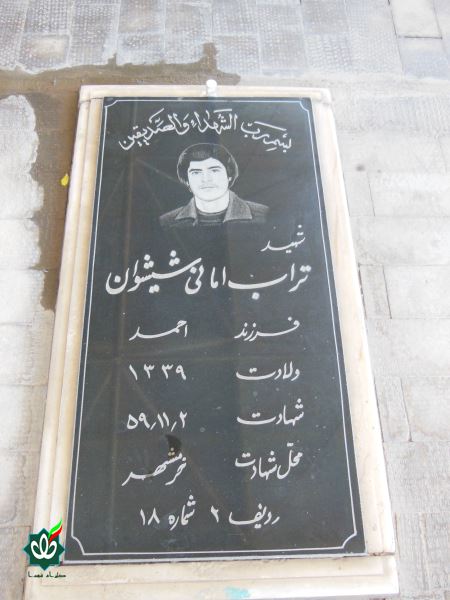 بسم رب الشهداء والصدیقین
شهید
تراب امانی شیشوان
فرزند احمد
ولادت ۱۳۳۹
شهادت ۵۹/۱۱/۲
محل شهادت خرمشهر
ردیف ۲ شماره ۱۸